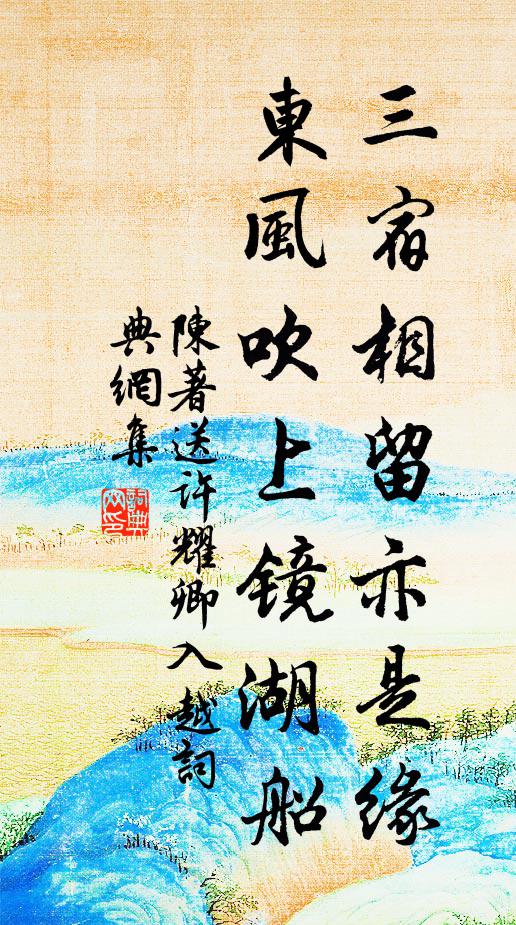 三宿相留亦是緣
東風吹上镜湖船
陳著送許耀卿入越詞
典網集
詞典
网印